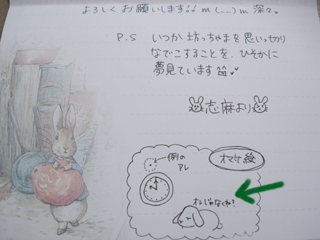 よろしくお願いします m(__)m 深々。
P.S いつか坊っちゃまを思いっきり
なでこすることを、ひそかに
夢見ています
志麻より
例の
アレ
オマケ絵
オレじゃなくね?